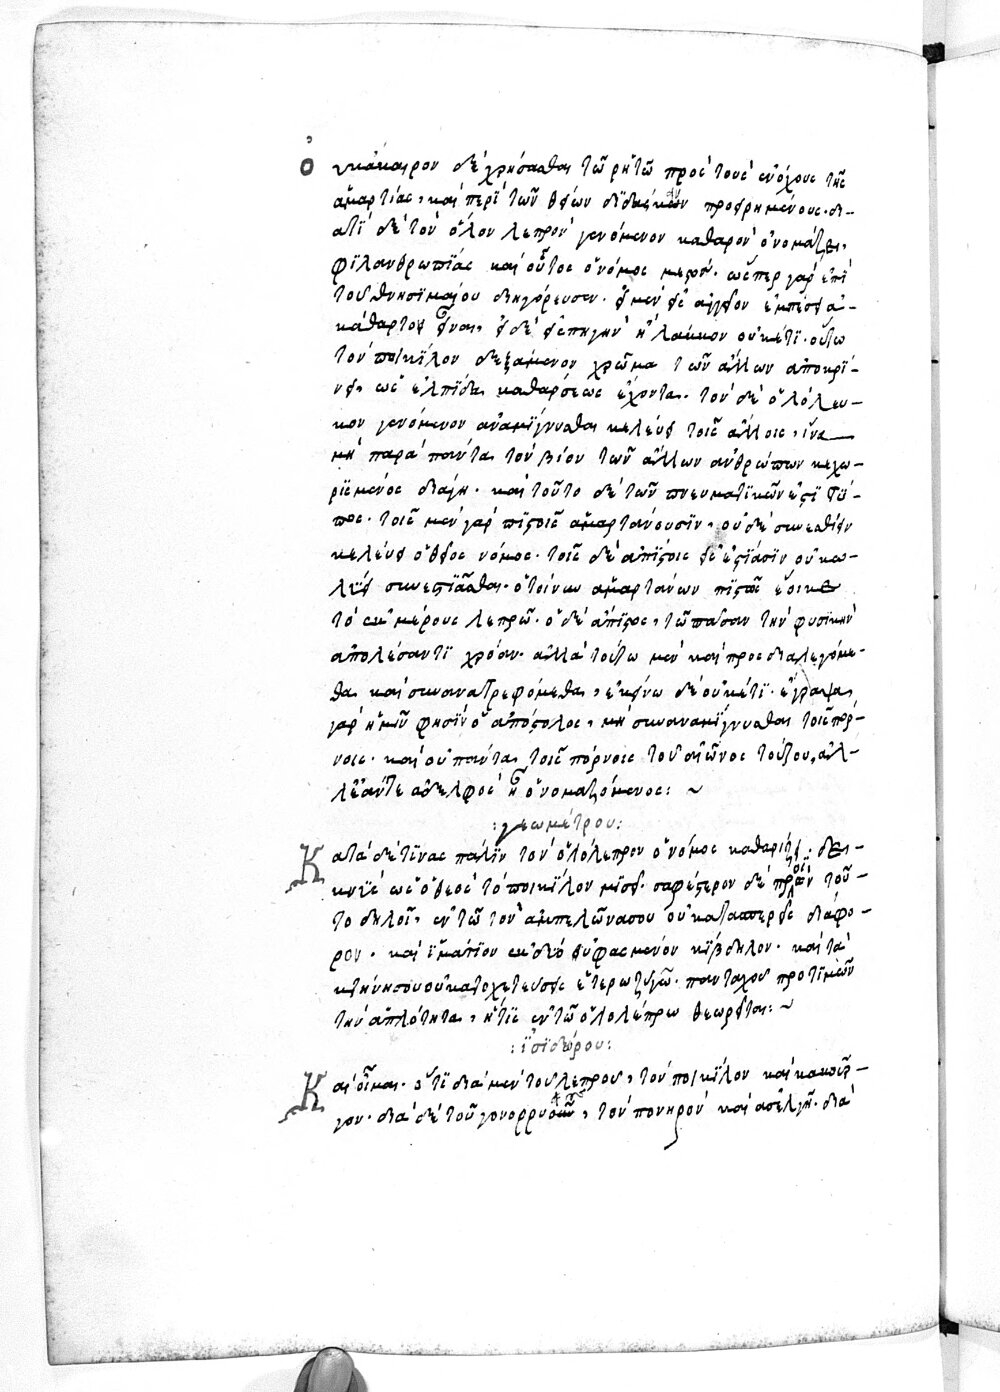 Οὐκ ἄκαιρον δὲ χρήσασθαι τῶ ρητῶ πρὸς τοὺς ἐνόχους τῆς
ἁμαρτίας, καὶ περὶ τῶν θείων προειρημένους. δι-
ατί δὲ τὸν ὅλον λεπρὸν γενόμενον καθαρὸν ὀνομάζει,
φιλανθρωπίας καὶ οὗτος ὁ νόμος μεστός. ὥσπερ γὰρ ἐπὶ
τοῦ θνησιμαίου διηγόρευσεν. εἰ μὲν εἰς ἀγγεῖον ἐμπέσει ἀ-
κάθαρτον εἶναι, εἰ δὲ εἰς πηγὴν ἢ λάκκον οὐκέτι. οὕτω
τὸν ποικίλον δεξάμενον χρῶμα τῶν ἄλλων ἀποκρί-
νει, ὡς ἐλπίδα καθάρσεως ἔχοντα. τὸν δὲ ὁλόλευ-
κον γενόμενον ἀναμίγνυσθαι κελεύει τοῖς ἄλλοις, ἵνα
μὴ παρὰ πάντα τὸν βίον τῶν ἄλλων ἀνθρώπων κεχω-
ρισμένος διάγη. καὶ τοῦτο δὲ τῶν πνευματικῶν ἐστὶ τύ-
πος. τοῖς μὲν γὰρ πιστοῖς ἁμαρτάνουσιν, οὐδὲ συνεσθίειν
κελεύει ὁ θεῖος νόμος. τοῖς δὲ ἀπίστοις εἰς ἑστίασιν οὐ κω-
λύει συνεστιᾶσθαι. ὁ τοίνυν ἁμαρτάνων πιστὸς ἔοικε
τὸ ἐκ μέρους λεπρῶ. ὁ δὲ ἄπιστος, τῶ πᾶσαν τὴν φυσικὴν
ἀπολέσαντι χρόαν. ἀλλὰ τούτω μὲν καὶ προσδιαλεγόμε-
θα καὶ συναναστρεφόμεθα, ἐκείνω δὲ οὐκέτι. ἔγραψα
γὰρ ἡμῖν φησὶν ὁ ἀπόστολος, μὴ συναναμίγνυσθαι τοῖς πόρ-
νοις. καὶ οὐ πάντα τοῖς πόρνοις τοῦ αἰῶνος τούτου, ἀλ-
λ' ἐάν τις ἀδελφὸς ἢ ὀνομαζόμενος: ~
: γεωμέτρου:
Κατὰ δέ τινας πάλιν τὸν ὁλόλεπρον ὁ νόμος καθαρίζει. δει-
κνὺς ὡς ὁ θεὸς τὸ ποικίλον μισεῖ. σαφέστερον δὲ τοῦ-
το δηλοῖ, ἐν τῶ τὸν ἀμπελῶνα σου οὐ κατασπερεῖς διάφο-
ρον. καὶ ἱμάτιον ἐκ δύο ὑφασμένον κίβδηλον. καὶ τὰ
κτήνη σου οὐ κατοχεύσεις ἑτεροζύγω. πανταχοῦ προτιμῶν
τὴν ἁπλότητα, ἥτις ἐν τῶ ὁλολέπρω θεωρεῖται: ~
: ἰσιδώρου:
Καὶ οἶμαι. ὅτι διὰ μὲν τοῦ λεπροῦ, τὸν ποικίλον καὶ κακοῦρ-
γον. διὰ δὲ τοῦ γονορρυοῦς, τὸν πονηρὸν καὶ ἀσελγῆ. διὰ